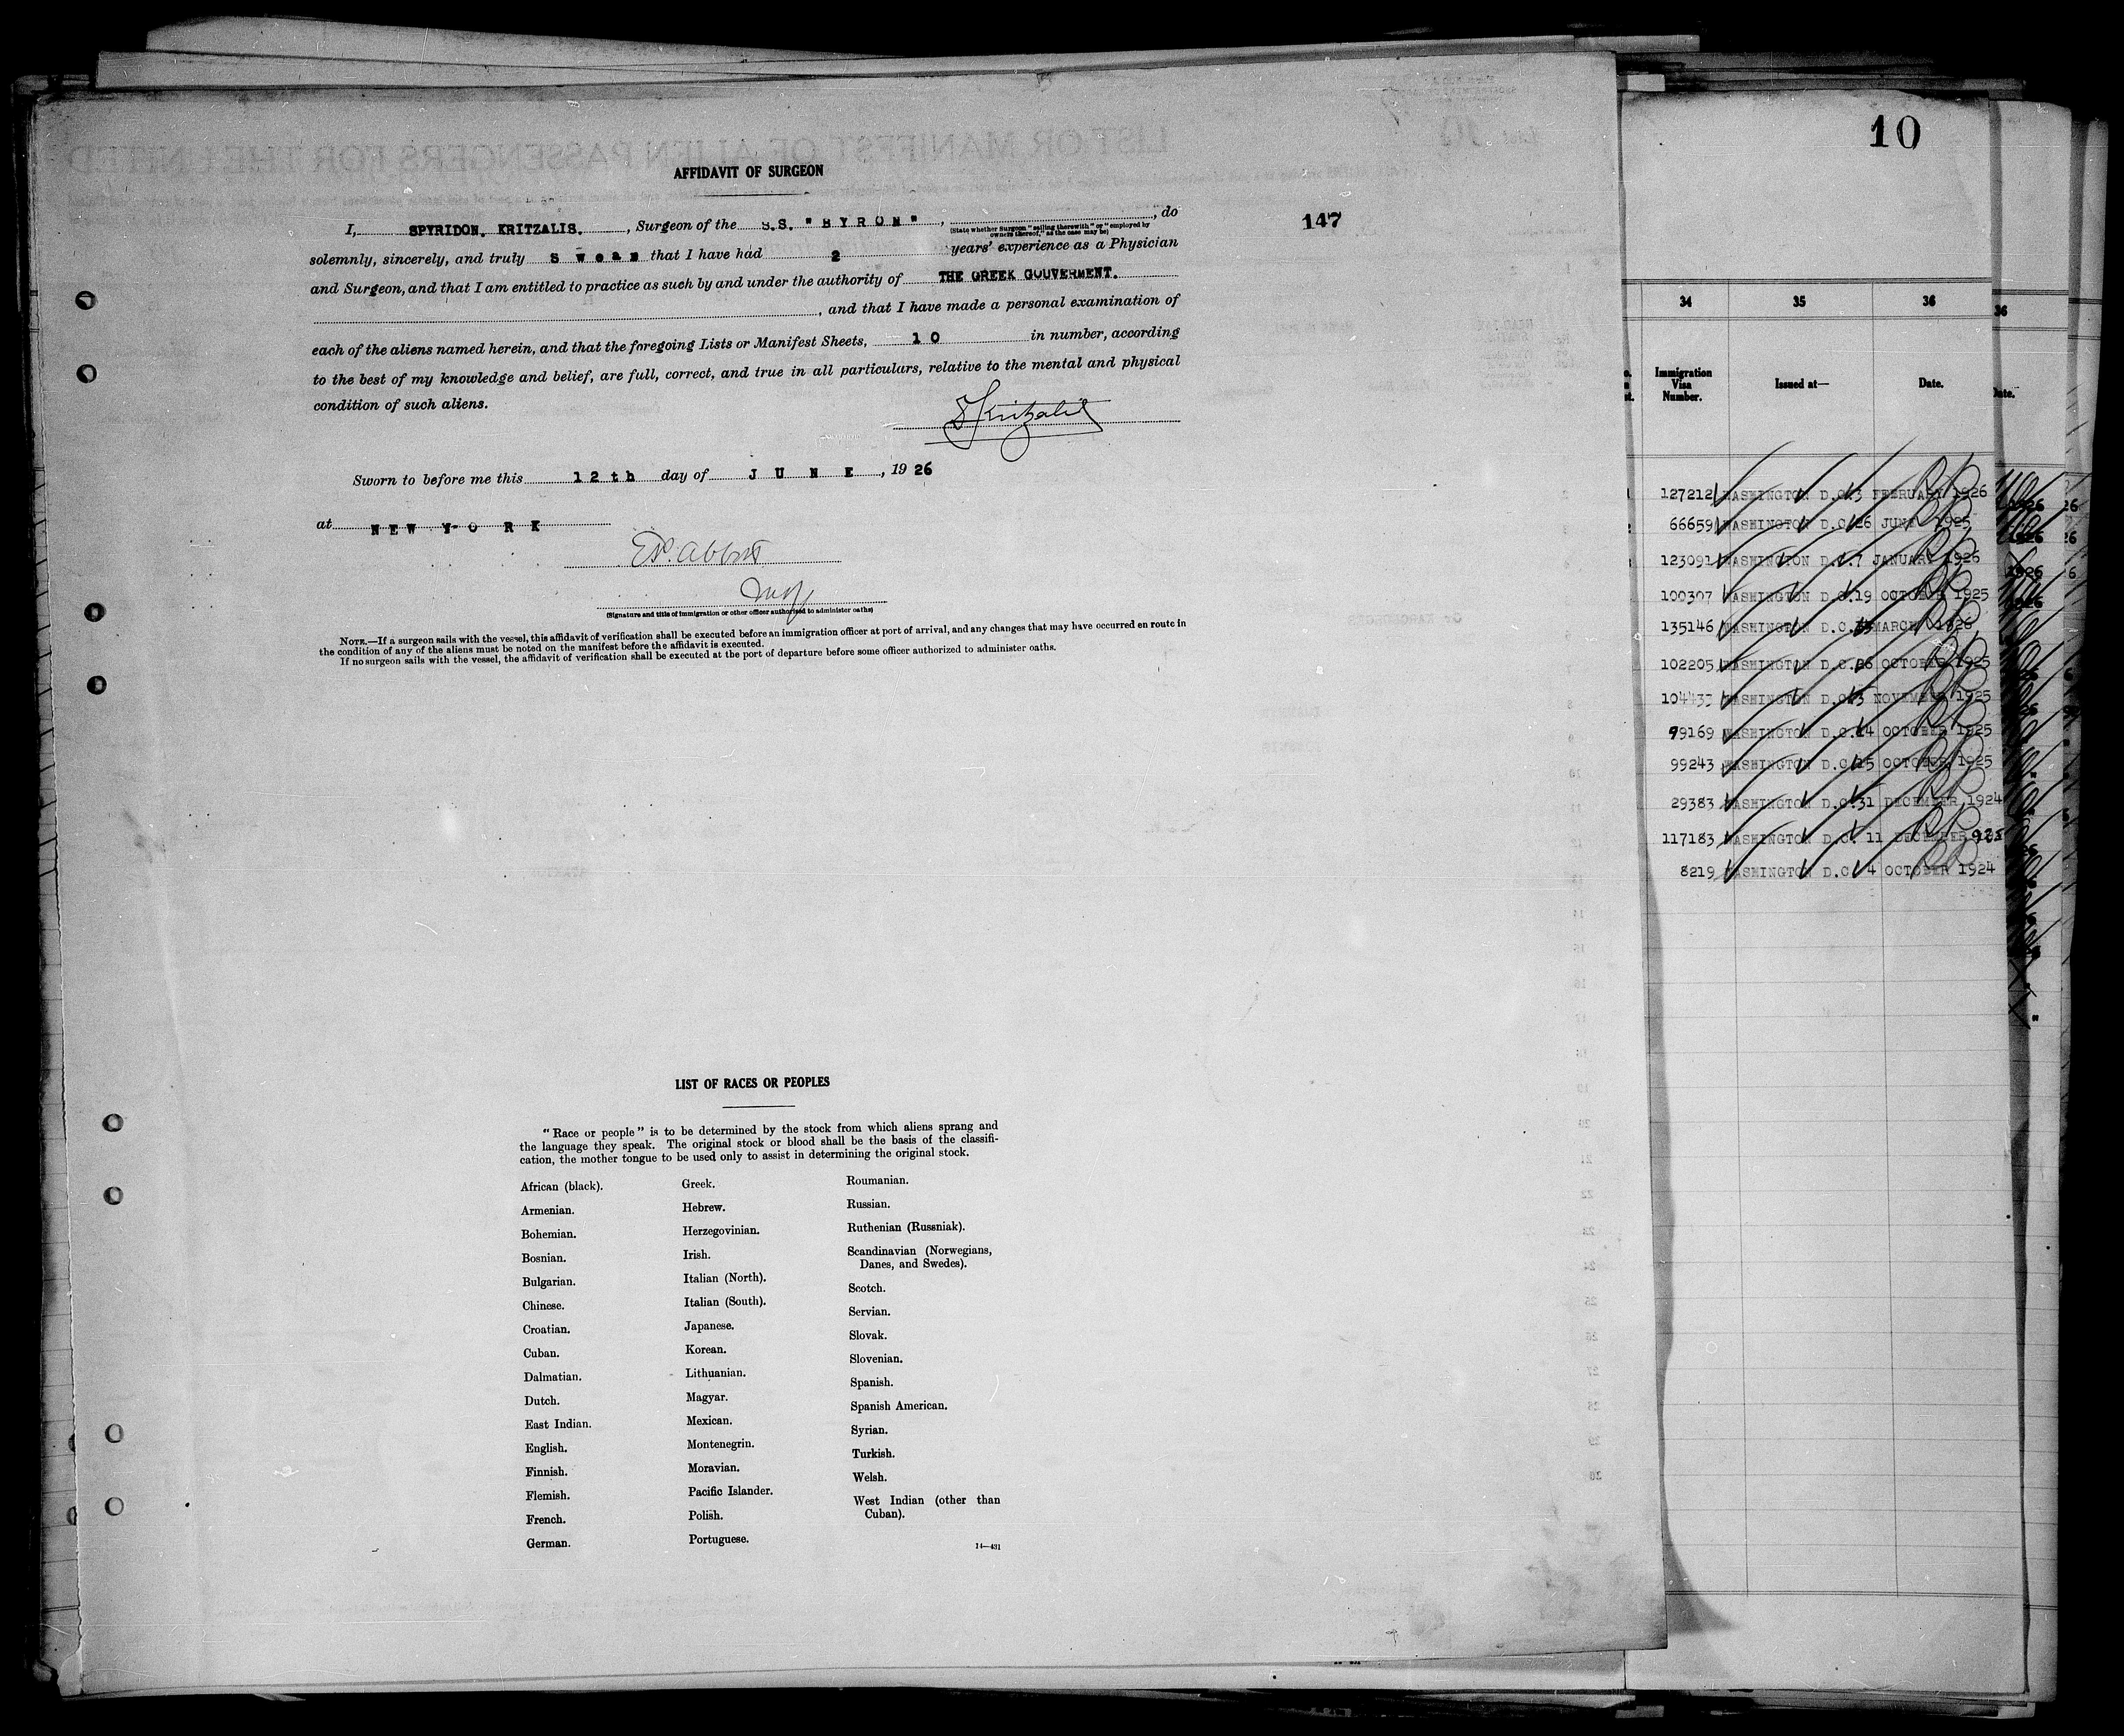 AFFIDAVIT OF SURGEON
147
I, SPYRIDON. KRITZALIS. , Surgeon of the S.S. "BYRON" , , do
(State whether Surgeon "sailing therewith" or "employed by owners thereof," as the case may be)
solemnly, sincerely, and truly Swear that I have had 2 years' experience as a Physician
and Surgeon, and that I am entitled to practice as such by and under the authority of THE GREEK GOUVERMENT.
, and that I have made a personal examination of
each of the aliens named herein, and that the foregoing Lists or Manifest Sheets, 10 in number, according
to the best of my knowledge and belief, are full, correct, and true in all particulars, relative to the mental and physical
condition of such aliens.
S Kritzalis
Sworn to before me this 12th day of JUNE , 1926
at NEW YORK
(Signature and title of immigration or other officer authorized to administer oaths)
NOTE.—If a surgeon sails with the vessel, this affidavit of verification shall be executed before an immigration officer at port of arrival, and any changes that may have occurred en route in
the condition of any of the aliens must be noted on the manifest before the affidavit is executed.
If no surgeon sails with the vessel, the affidavit of verification shall be executed at the port of departure before some officer authorized to administer oaths.
LIST OF RACES OR PEOPLES
"Race or people" is to be determined by the stock from which aliens sprang and
the language they speak. The original stock or blood shall be the basis of the classifi-
cation, the mother tongue to be used only to assist in determining the original stock.
African (black).
Armenian.
Bohemian.
Bosnian.
Bulgarian.
Chinese.
Croatian.
Cuban.
Dalmatian.
Dutch.
East Indian.
English.
Finnish.
Flemish.
French.
German.
Greek.
Hebrew.
Herzegovinian.
Irish.
Italian (North).
Italian (South).
Japanese.
Korean.
Lithuanian.
Magyar.
Mexican.
Montenegrin.
Moravian.
Pacific Islander.
Polish.
Portuguese.
Roumanian.
Russian.
Ruthenian (Russniak).
Scandinavian (Norwegians,
Danes, and Swedes).
Scotch.
Servian.
Slovak.
Slovenian.
Spanish.
Spanish American.
Syrian.
Turkish.
Welsh.
West Indian (other than
Cuban).
14—431
10
34 35 36
Immigration Visa Number. Issued at— Date.
127212 WASHINGTON D.C. 3 FEBRUARY 1926
66659 WASHINGTON D.C. 26 JUNE 1925
123091 WASHINGTON D.C. 7 JANUARY 1926
100307 WASHINGTON D.C. 19 OCTOBER 1925
135146 WASHINGTON D.C. MARCH 1926
102205 WASHINGTON D.C. 26 OCTOBER 1925
104437 WASHINGTON D.C. 3 NOVEMBER 1925
99169 WASHINGTON D.C. 14 OCTOBER 1925
99243 WASHINGTON D.C. 15 OCTOBER 1925
29383 WASHINGTON D.C. 31 DECEMBER 1924
117183 WASHINGTON D.C. 11 DECEMBER 925
8219 WASHINGTON D.C. 4 OCTOBER 1924